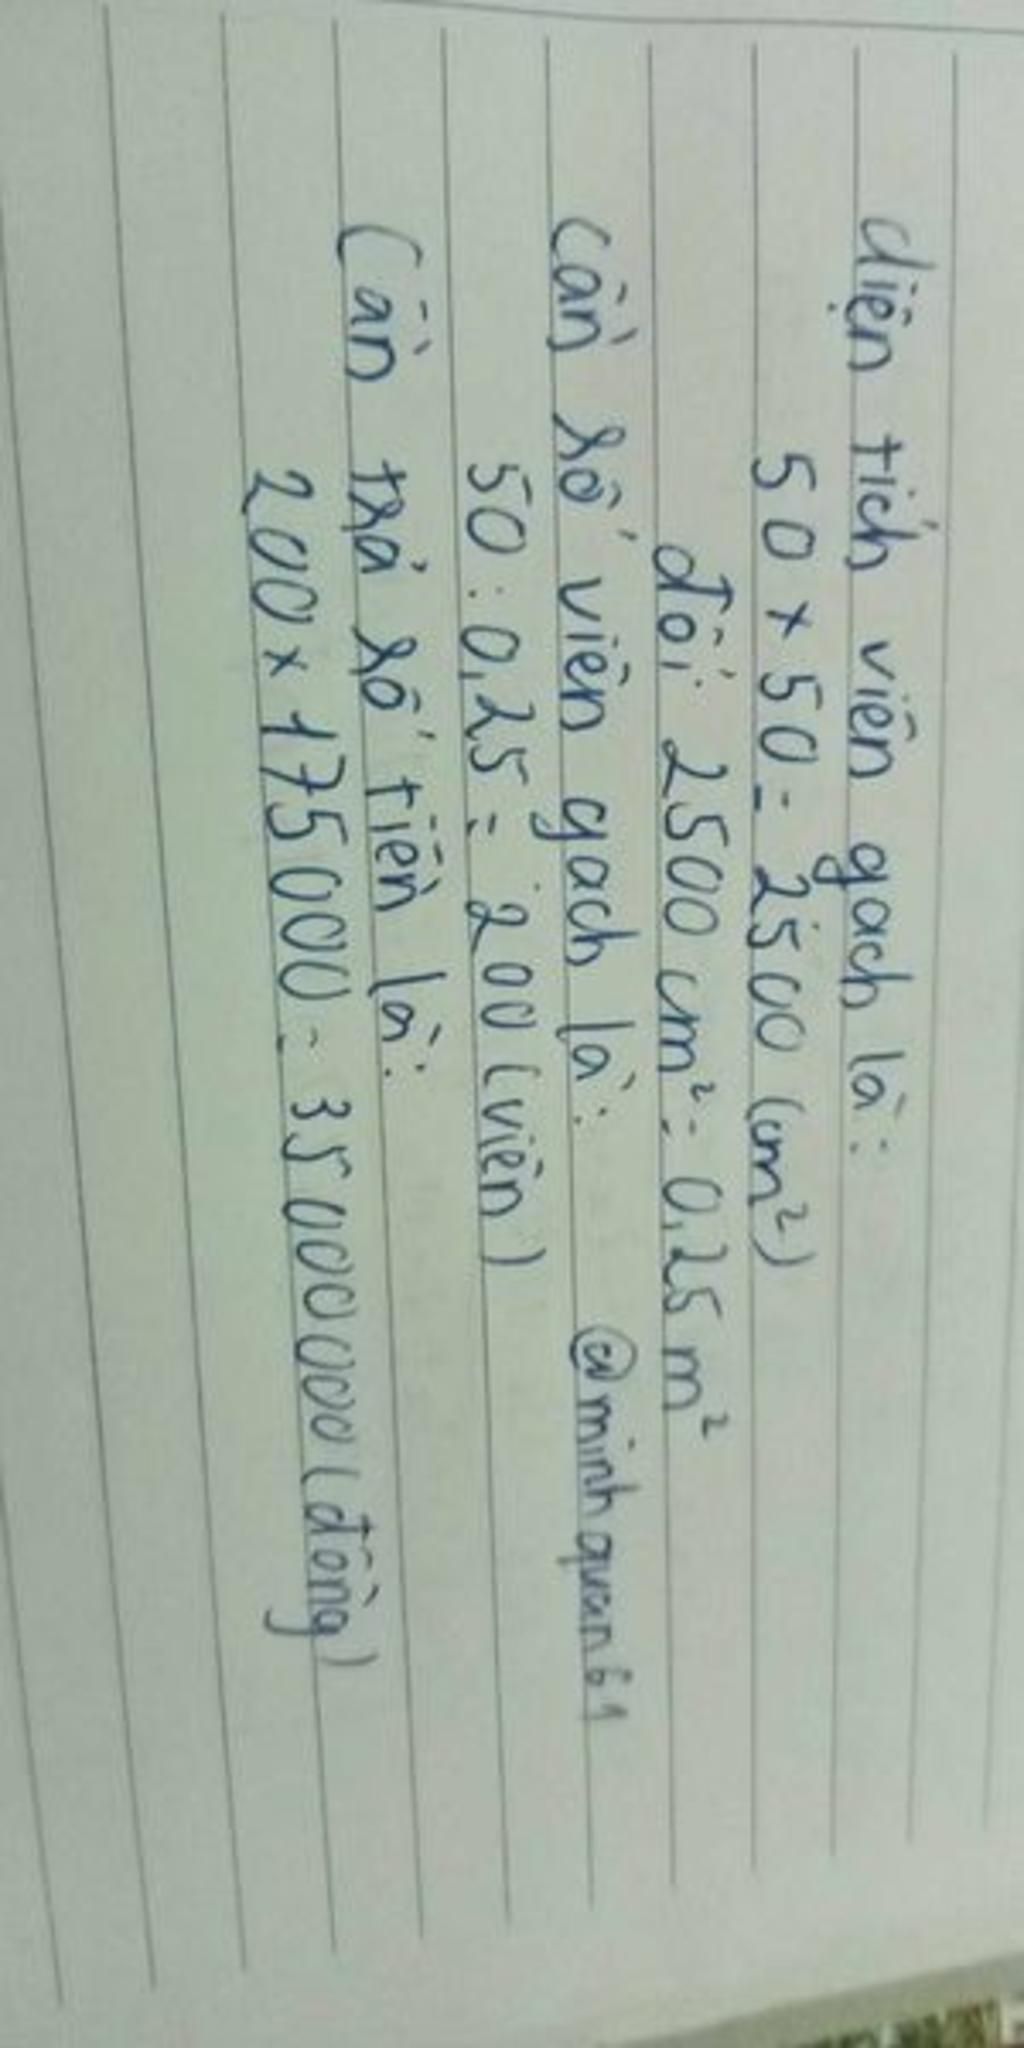 diện tích viên gạch là:
50 x 50 = 2500 (cm²)
đổi: 2500 cm² = 0,25 m²
Cần số viên gạch là:
@minhquan61
50 : 0,25 = 200 (viên)
Cần trả số tiền là:
200 x 175000 = 35000000 (đồng)